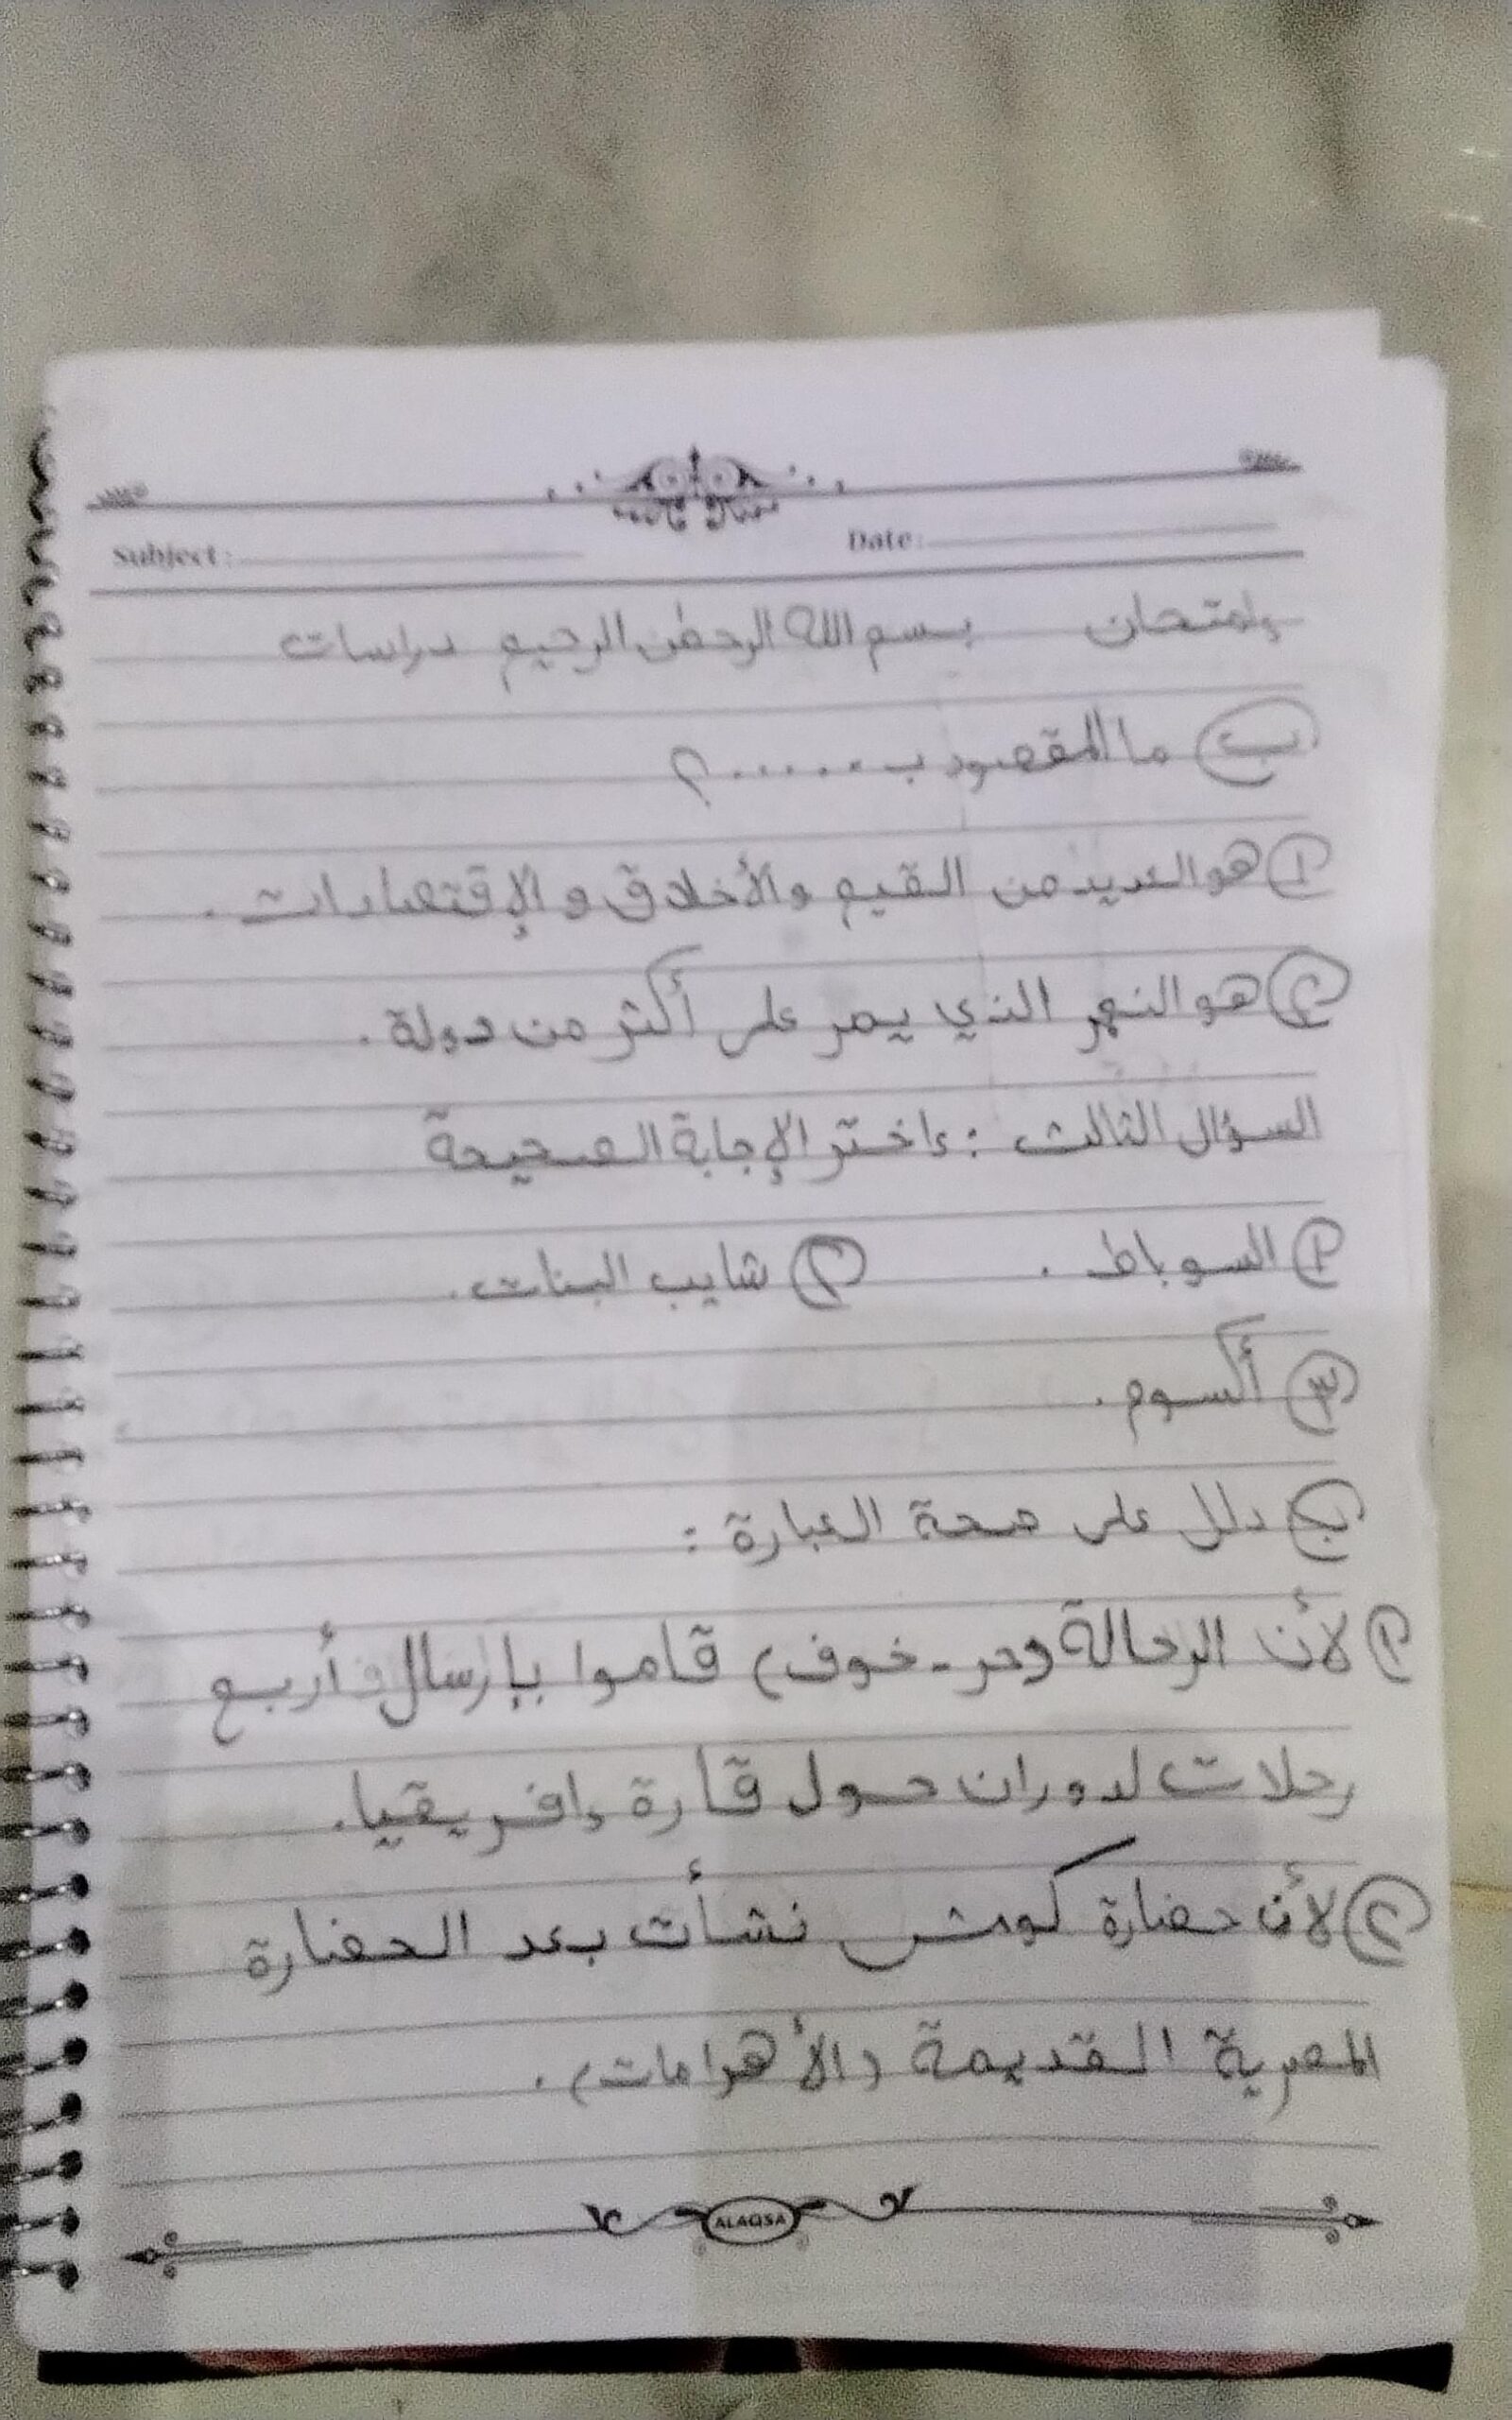 Subject: Date:
إمتحان بسم الله الرحمٰن الرحيم دراسات
ب ما المقصود ب......؟
١ هو العديد من القيم والأخلاق و الإقتصادات.
٢ هو النهر الذي يمر على أكثر من دولة.
السؤال الثالث : إختر الإجابة الصحيحة
١ السوباط. ٢ شايب البنات.
٣ أكسوم.
ب دلل على صحة العبارة :
١ لأن الرحالة (حر-خوف) قاموا بإرسال أربع
رحلات لدوران حول قارة إفريقيا.
٢ لأن حضارة كوش نشأت بعد الحضارة
المصرية القديمة (الأهرامات).
ALAQSA